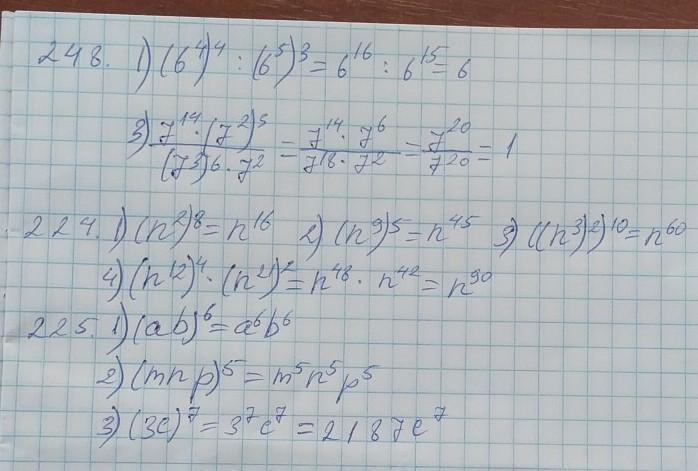 248. 1) (6⁴)⁴ : (6⁵)³ = 6¹⁶ : 6¹⁵ = 6
3) 7¹⁴ · (7²)⁵ / (7³)6 · 7² = 7¹⁴ · 7⁶ / 7¹⁸ · 7² = 7²⁰ / 7²⁰ = 1
224. 1) (n²)⁸ = n¹⁶ 2) (n⁹)⁵ = n⁴⁵ 3) ((n³)²)¹⁰ = n⁶⁰
4) (n¹²)⁴ · (n²¹)² = n⁴⁸ · n⁴² = n⁹⁰
225. 1) (ab)⁶ = a⁶b⁶
2) (mnp)⁵ = m⁵n⁵p⁵
3) (3c)⁷ = 3⁷c⁷ = 2187c⁷